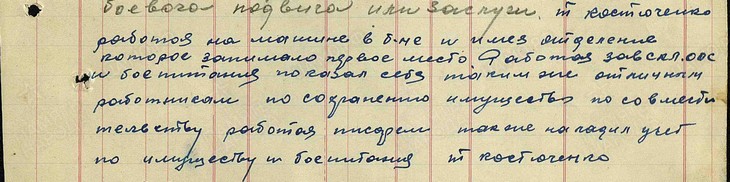 боевого подвига или заслуги. т костюченко
работая на машине в б-не и имея отделение
которое занимало первое место. Работая зав скл. ОВС
и боепитания показал себя таким же отличным
работником по сохранению имущества по совмести
тельству работая писарем также наладил учет
по имуществу и боепитания т костюченко